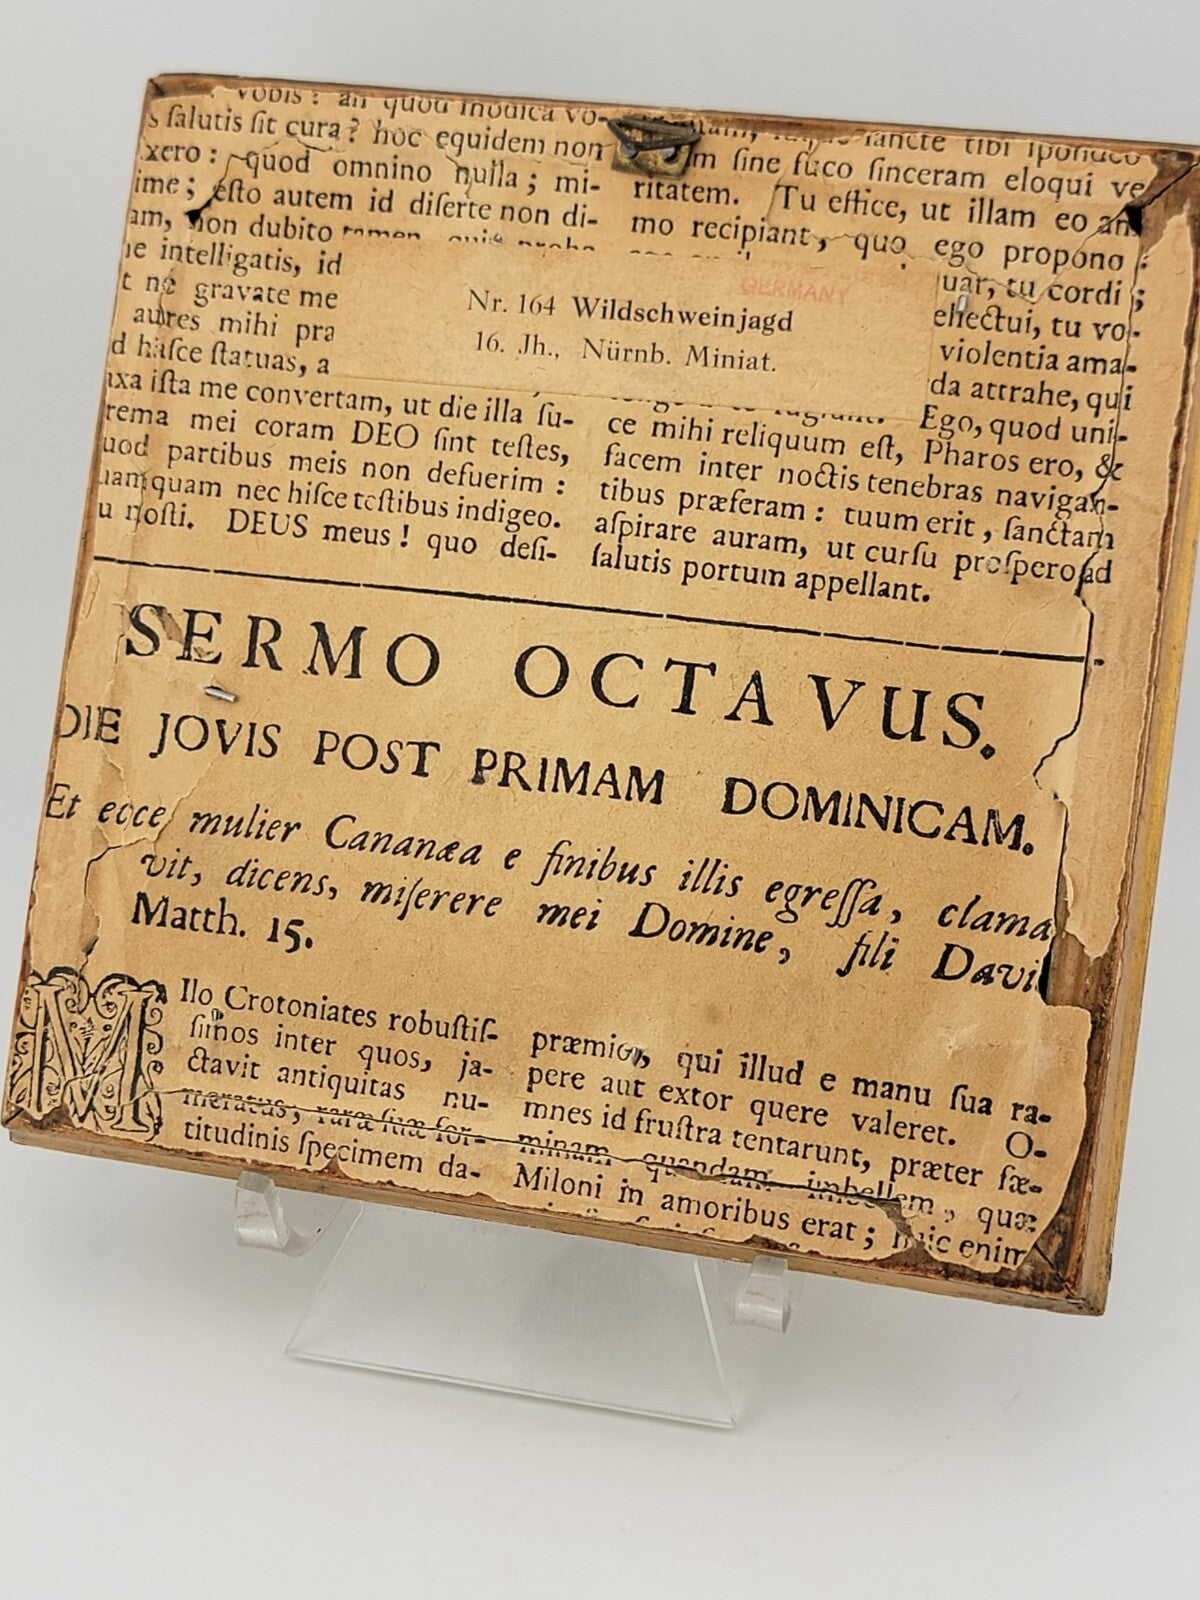 vobis? an quod modica vo-
s ſalutis ſit cura? hoc equidem non
xero: quod omnino nulla; mi-
ime; eſto autem id diſerte non di-
am, non dubito tamen
e intelligatis, id
t ne gravate me
aures mihi pra
d haſce ſtatuas, a
axa iſta me convertam, ut die illa ſu-
rema mei coram DEO ſint teſtes,
uod partibus meis non defuerim:
uamquam nec hiſce teſtibus indigeo.
u noſti. DEUS meus! quo deſi-
ſancte tibi ſpondeo
m ſine fuco ſinceram eloqui ve
ritatem. Tu effice, ut illam eo an
mo recipiant, quo ego propono:
uar, tu cordi;
ellectui, tu vo-
violentia ama-
da attrahe, qui
Ego, quod uni-
ce mihi reliquum eſt, Pharos ero, &
facem inter noctis tenebras navigan-
tibus præferam: tuum erit, ſanctam
aſpirare auram, ut curſu proſpero ad
ſalutis portum appellant.
GERMANY
Nr. 164 Wildschweinjagd
16. Jh., Nürnb. Miniat.
SERMO OCTAVUS.
DIE JOVIS POST PRIMAM DOMINICAM.
Et ecce mulier Cananæa e finibus illis egreſſa, clama
vit, dicens, miſerere mei Domine, fili Davi
Matth. 15.
MIlo Crotoniates robuſtiſ-
ſimos inter quos, ja-
ctavit antiquitas nu-
meratus, raræ ſuæ for-
titudinis ſpecimem da-
præmior, qui illud e manu ſua ra-
pere aut extor quere valeret. O-
mnes id fruſtra tentarunt, præter fæ-
minam quandam imbellem, quæ
Miloni in amoribus erat; huic enim